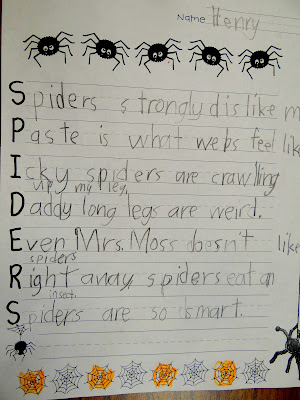 Name Henry
Spiders strongly dislike m
Paste is what webs feel like
Icky spiders are crawling
up my leg.
Daddy long legs are weird.
Even Mrs. Moss doesn't like
spiders
Right away, spiders eat an
insect.
Spiders are so smart.